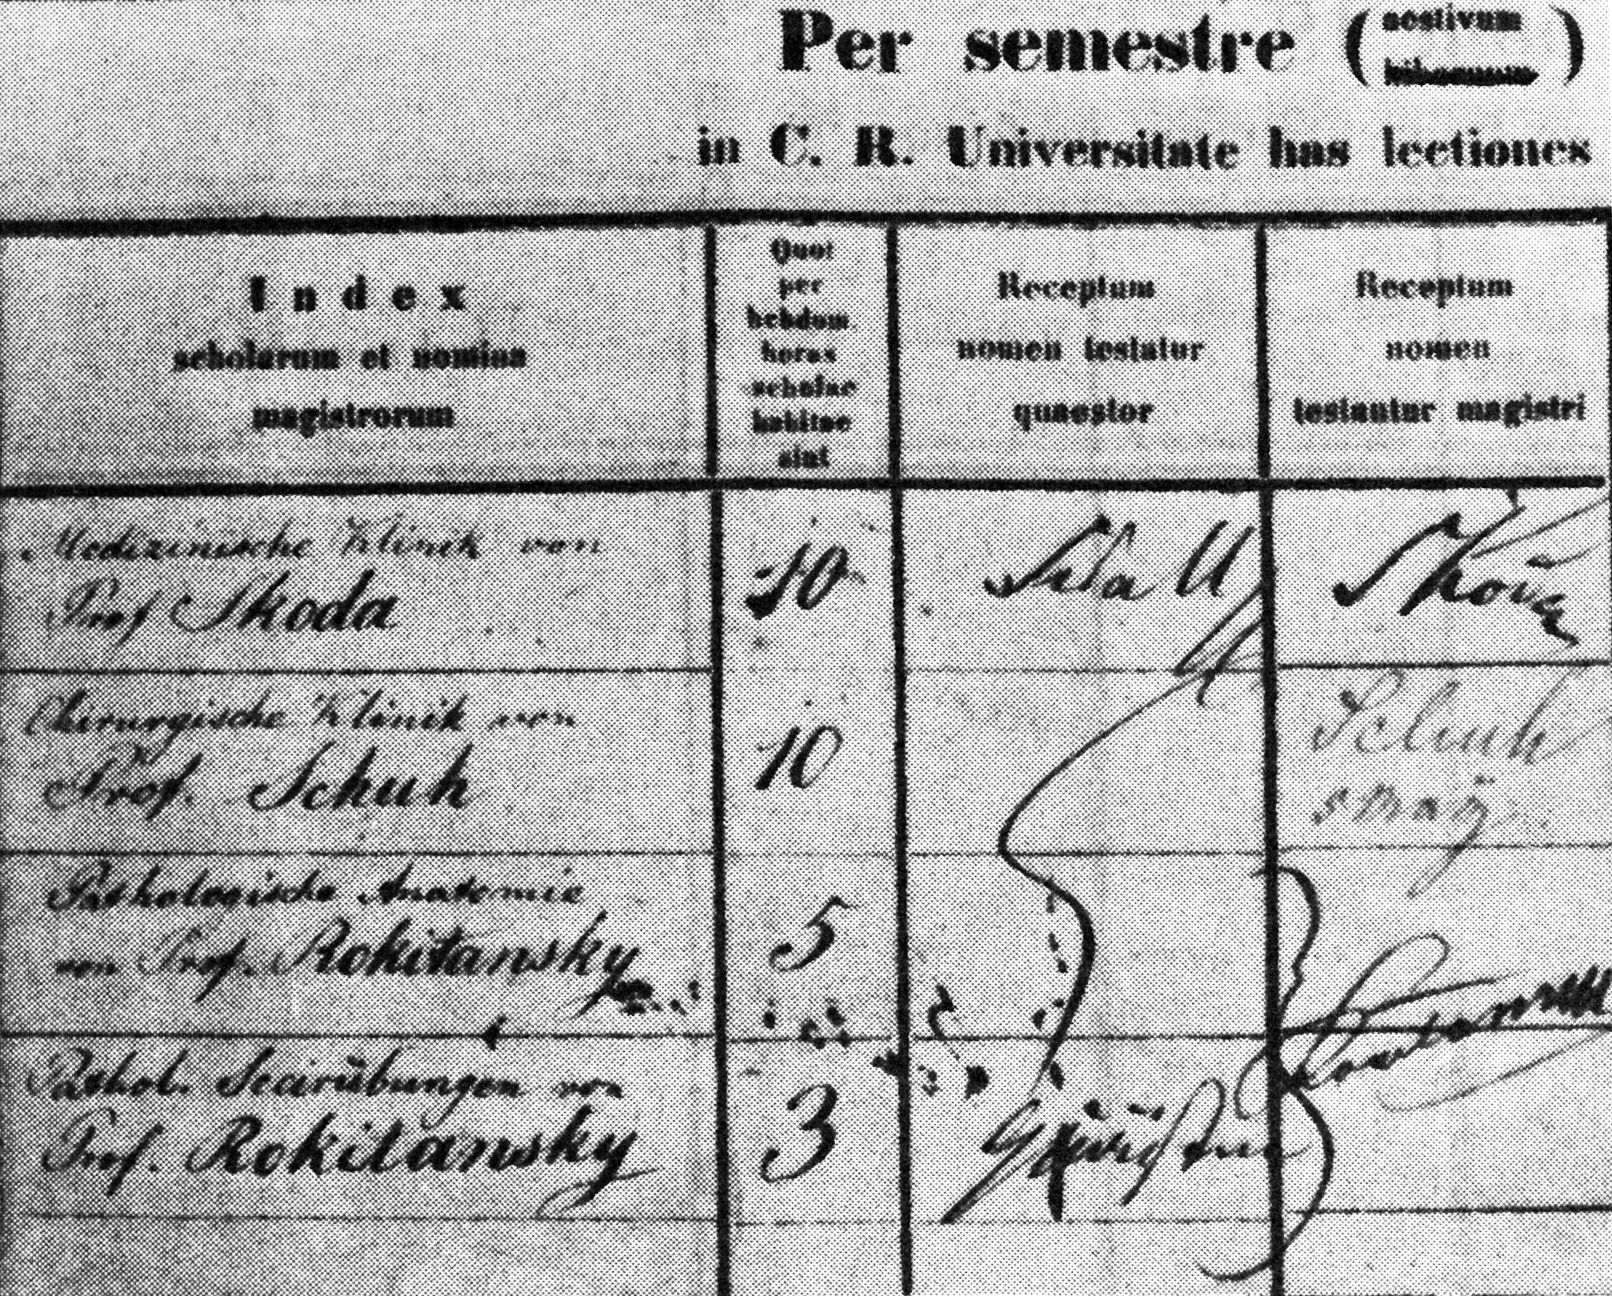 Per semestre ( aestivum
hibernum )
in C. R. Universitate has lectiones
Index
scholarum et nomina
magistrorum
Quot
per
hebdom.
horas
scholae
habitae
sint
Receptum
nomen testatur
quaestor
Receptum
nomen
testantur magistri
Medizinische Klinik von
Prof Skoda
10
Skoda
Chirurgische Klinik von
Prof. Schuh
10
Schuh
Pathologische Anatomie
von Prof. Rokitansky
5
Pathol. Secirübungen von
Prof. Rokitansky
3